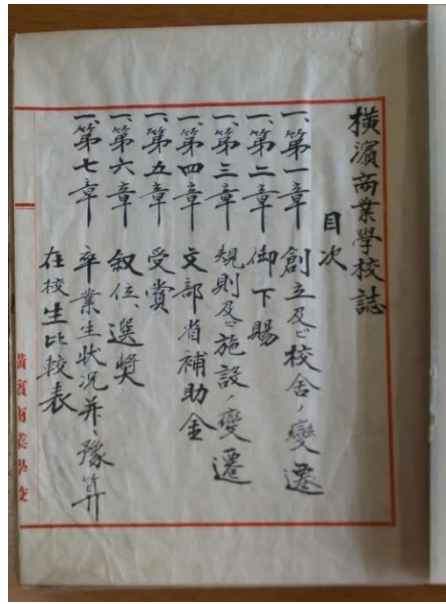 横濱商業學校誌
目次
一、第一章 創立及ビ校舎ノ變遷
一、第二章 御下賜
一、第三章 規則及ビ施設ノ變遷
一、第四章 文部省補助金
一、第五章 受賞
一、第六章 叙位、選奨
一、第七章 卒業生状况并ニ豫算
在校生比較表
横濱商業學校